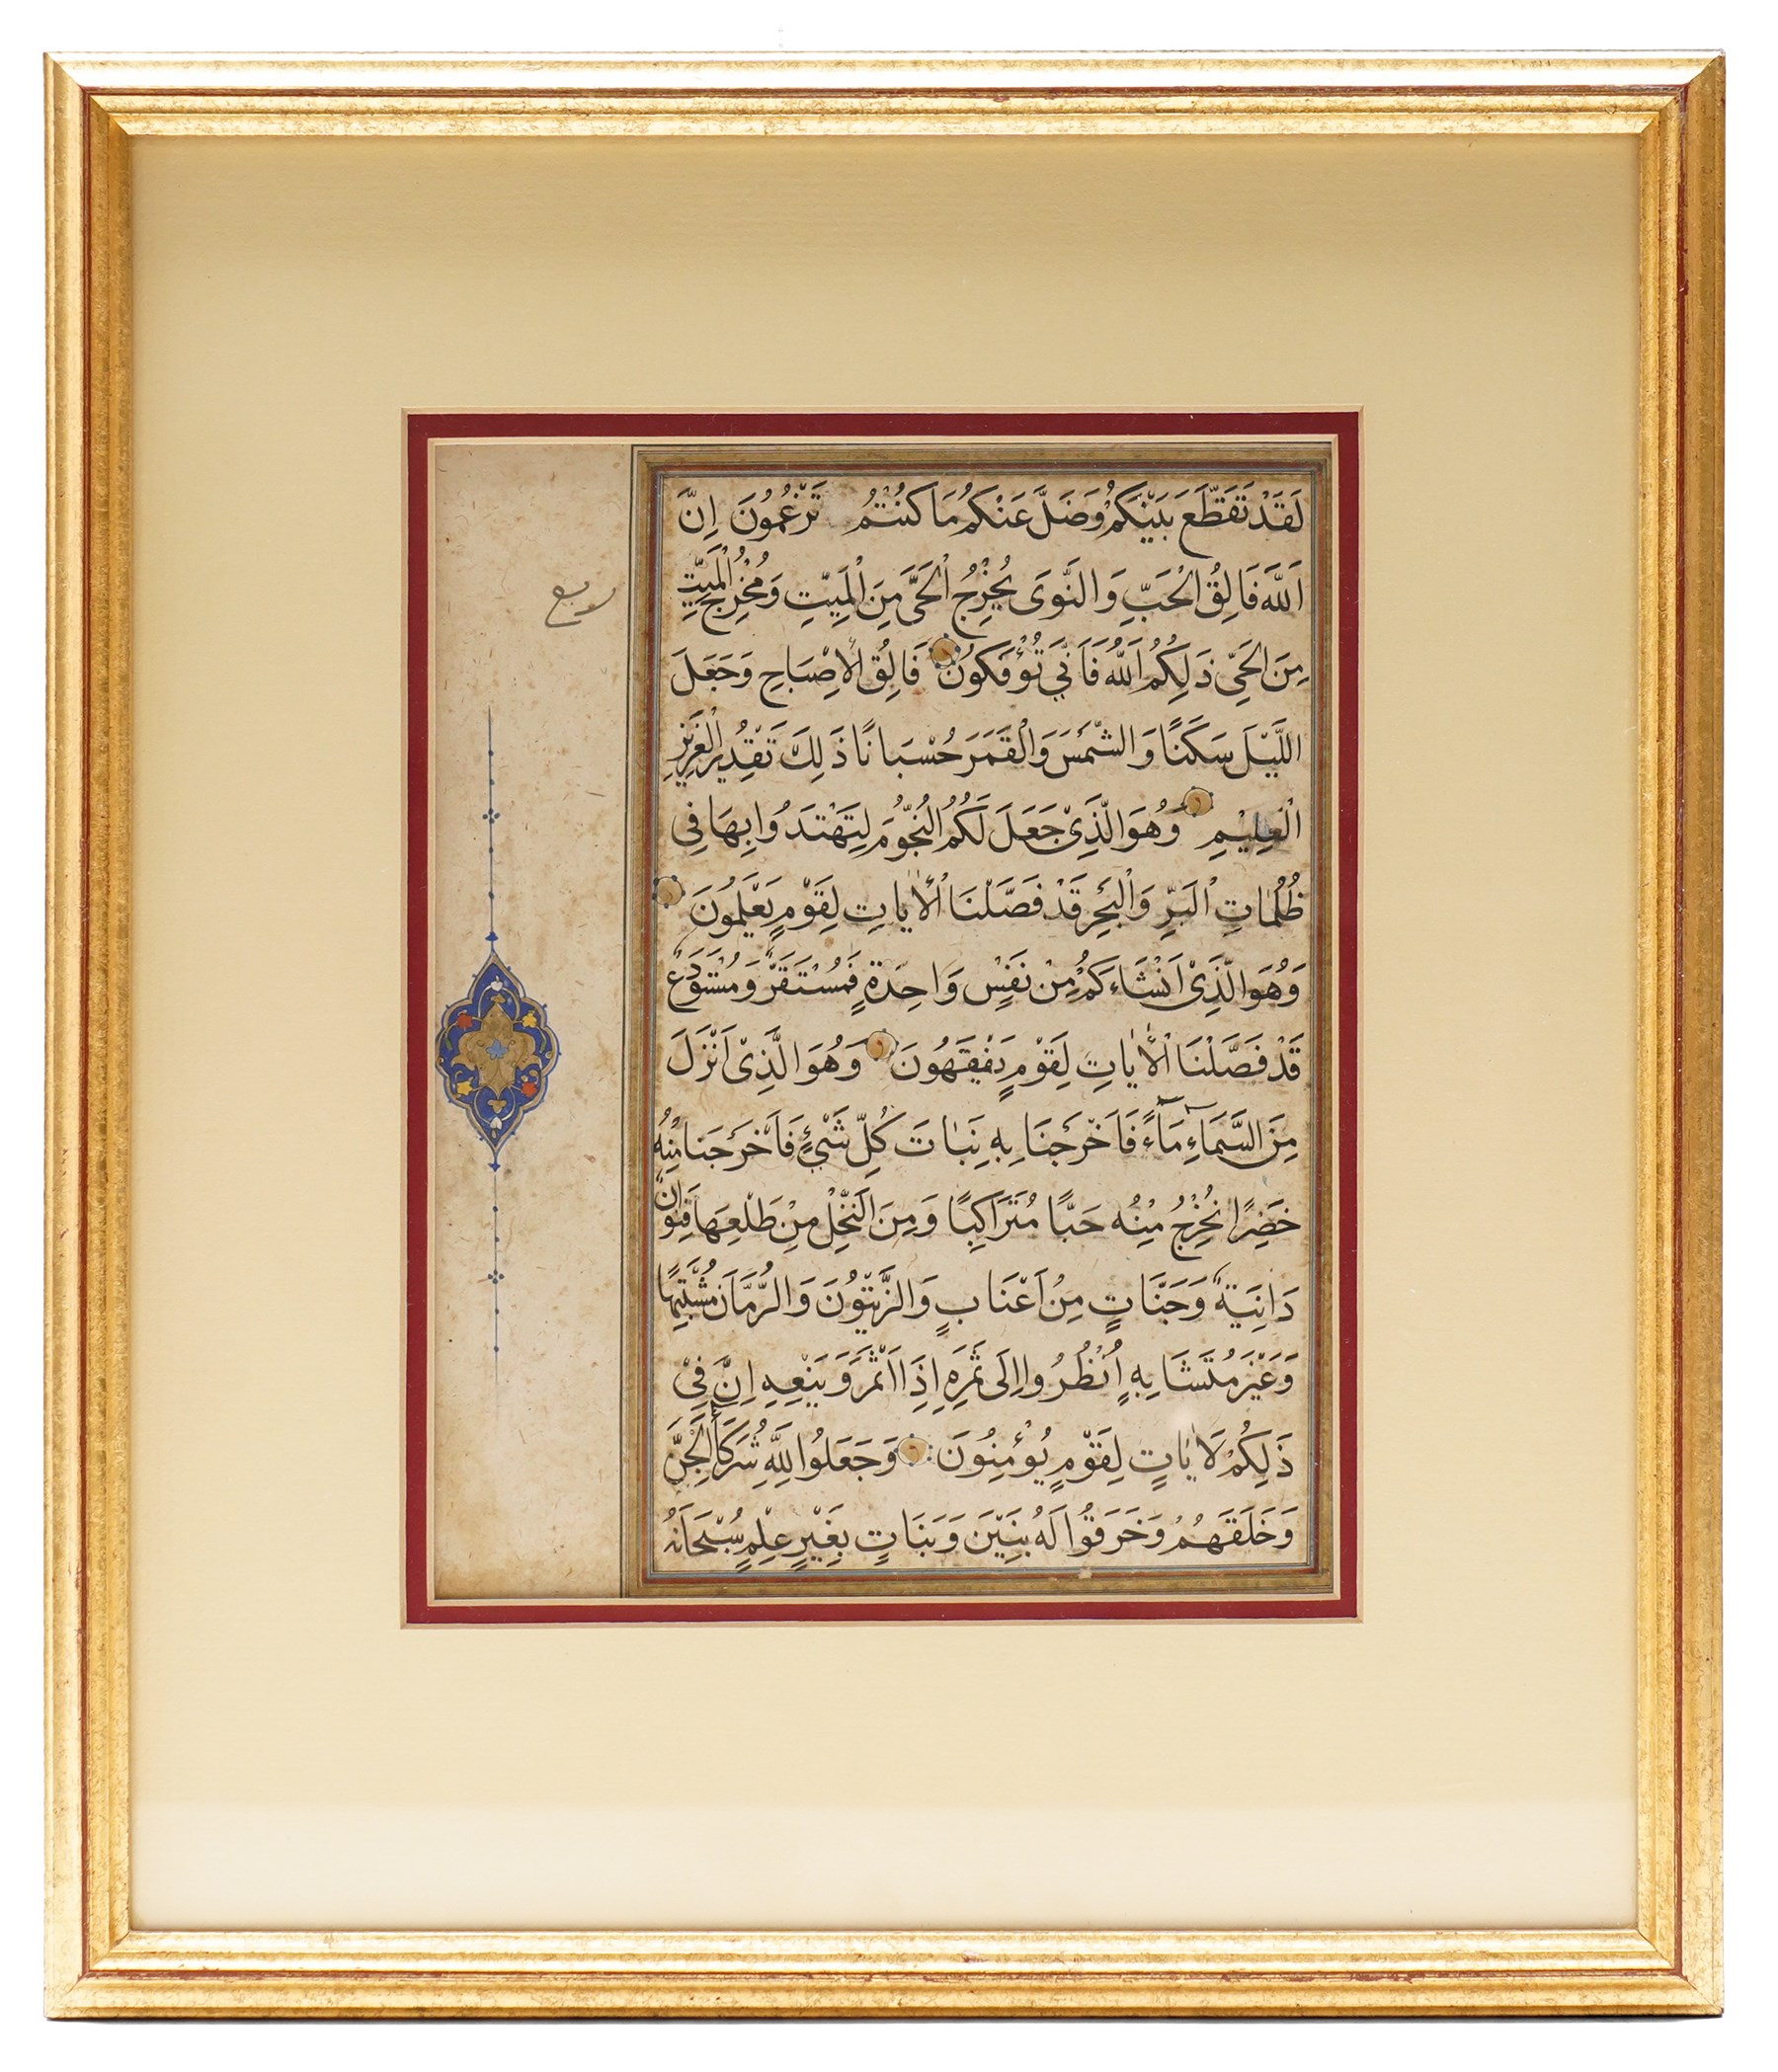 لَقَدْ تَقَطَّعَ بَيْنَكُمْ وَضَلَّ عَنْكُمْ مَا كُنْتُمْ تَزْعُمُونَ اِنَّ
اَللّٰهَ فَالِقُ الْحَبِّ وَالنَّوَى يُخْرِجُ الْحَىَّ مِنَ الْمَيِّتِ وَمُخْرِجُ الْمَيِّتِ
ربع
مِنَ الْحَىِّ ذَلِكُمُ اللّٰهُ فَاَنَّى تُؤْفَكُونَ فَالِقُ الْاِصْبَاحِ وَجَعَلَ
اللَّيْلَ سَكَنًا وَالشَّمْسَ وَالْقَمَرَ حُسْبَانًا ذَلِكَ تَقْدِيرُ الْعَزِيزِ
الْعَلِيْمِ وَهُوَ الَّذِىْ جَعَلَ لَكُمُ النُّجُومَ لِتَهْتَدُوا بِهَا فِى
ظُلُمَاتِ الْبَرِّ وَالْبَحْرِ قَدْ فَصَّلْنَا الْاٰيَاتِ لِقَوْمٍ يَعْلَمُونَ
وَهُوَ الَّذِىْ اَنْشَاَءَكُمْ مِنْ نَفْسٍ وَاحِدَةٍ فَمُسْتَقَرٌّ وَمُسْتَوْدَعٌ
قَدْ فَصَّلْنَا الْاٰيَاتِ لِقَوْمٍ يَفْقَهُونَ وَهُوَ الَّذِىْ اَنْزَلَ
مِنَ السَّمَاءِ مَاءً فَاَخْرَجْنَا بِهِ نَبَاتَ كُلِّ شَىْءٍ فَاَخْرَجْنَا مِنْهُ
خَضِرًا نُخْرِجُ مِنْهُ حَبًّا مُتَرَاكِبًا وَمِنَ النَّخْلِ مِنْ طَلْعِهَا قِنْوَانٌ
دَانِيَةٌ وَجَنَّاتٍ مِنْ اَعْنَابٍ وَالزَّيْتُونَ وَالرُّمَّانَ مُشْتَبِهًا
وَغَيْرَ مُتَشَابِهٍ اُنْظُرُوا اِلَى ثَمَرِهِ اِذَا اَثْمَرَ وَيَنْعِهِ اِنَّ فِىْ
ذَلِكُمْ لَاٰيَاتٍ لِقَوْمٍ يُؤْمِنُونَ وَجَعَلُوا لِلّٰهِ شُرَكَاَءَ الْجِنَّ
وَخَلَقَهُمْ وَخَرَقُوا لَهُ بَنِيْنَ وَبَنَاتٍ بِغَيْرِ عِلْمٍ سُبْحَانَهُ